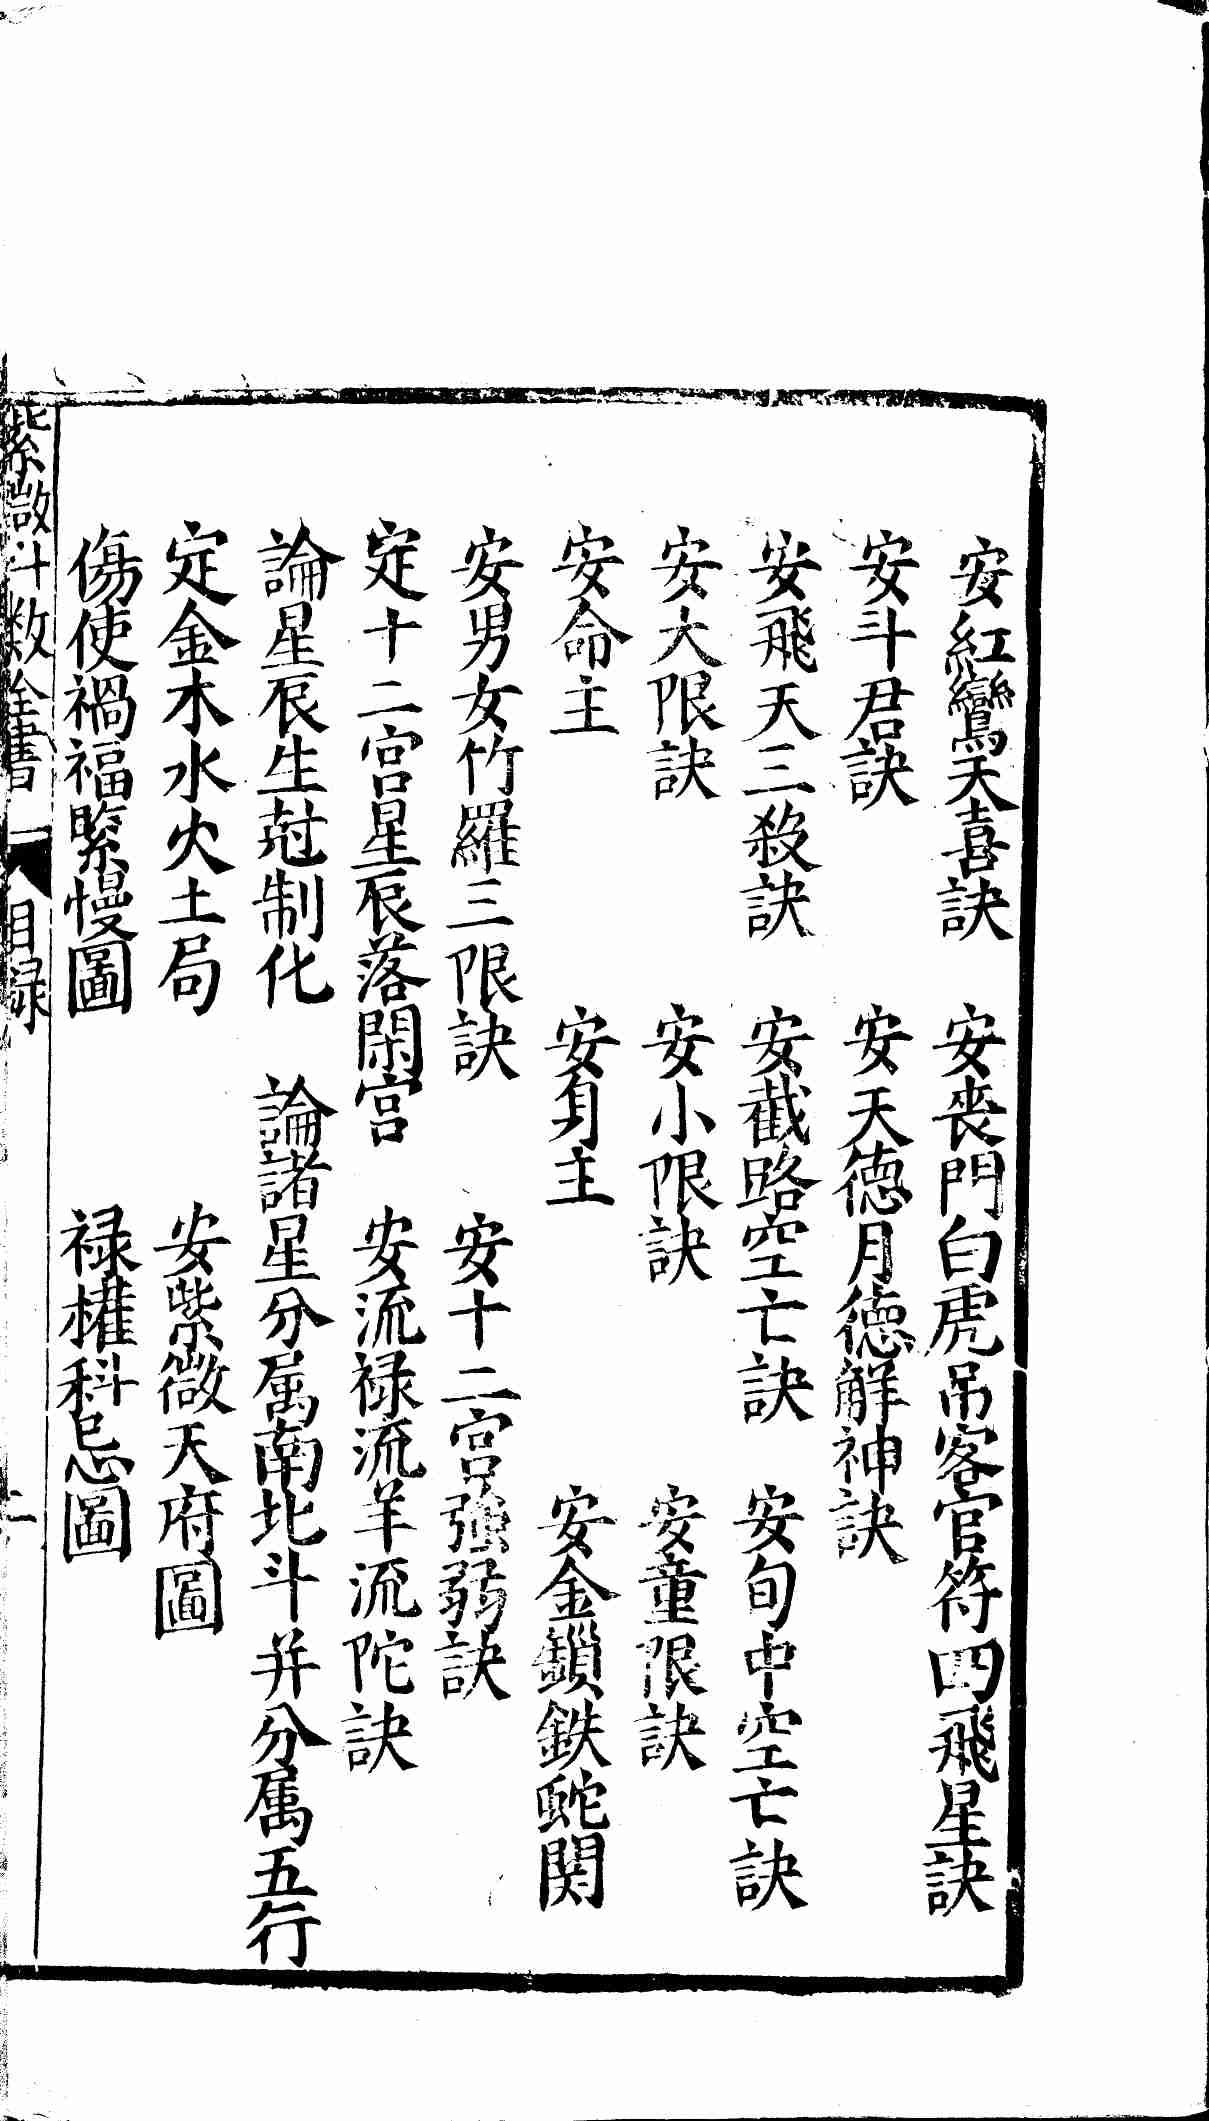 安紅鸞天喜訣　安丧門白虎吊客官符四飛星訣
安斗君訣　安天德月德解神訣
安飛天三殺訣　安截路空亡訣　安旬中空亡訣
安大限訣　安小限訣　安童限訣
安命主　安身主　安金鎖鉄蛇関
安男女竹羅三限訣　安十二宫強弱訣
定十二宫星辰落閑宫　安流禄流羊流陀訣
論星辰生尅制化　論諸星分属南北斗并分属五行
定金木水火土局　安紫微天府圖
傷使禍福緊慢圖　禄權科忌圖
紫微斗数全書　目録　二